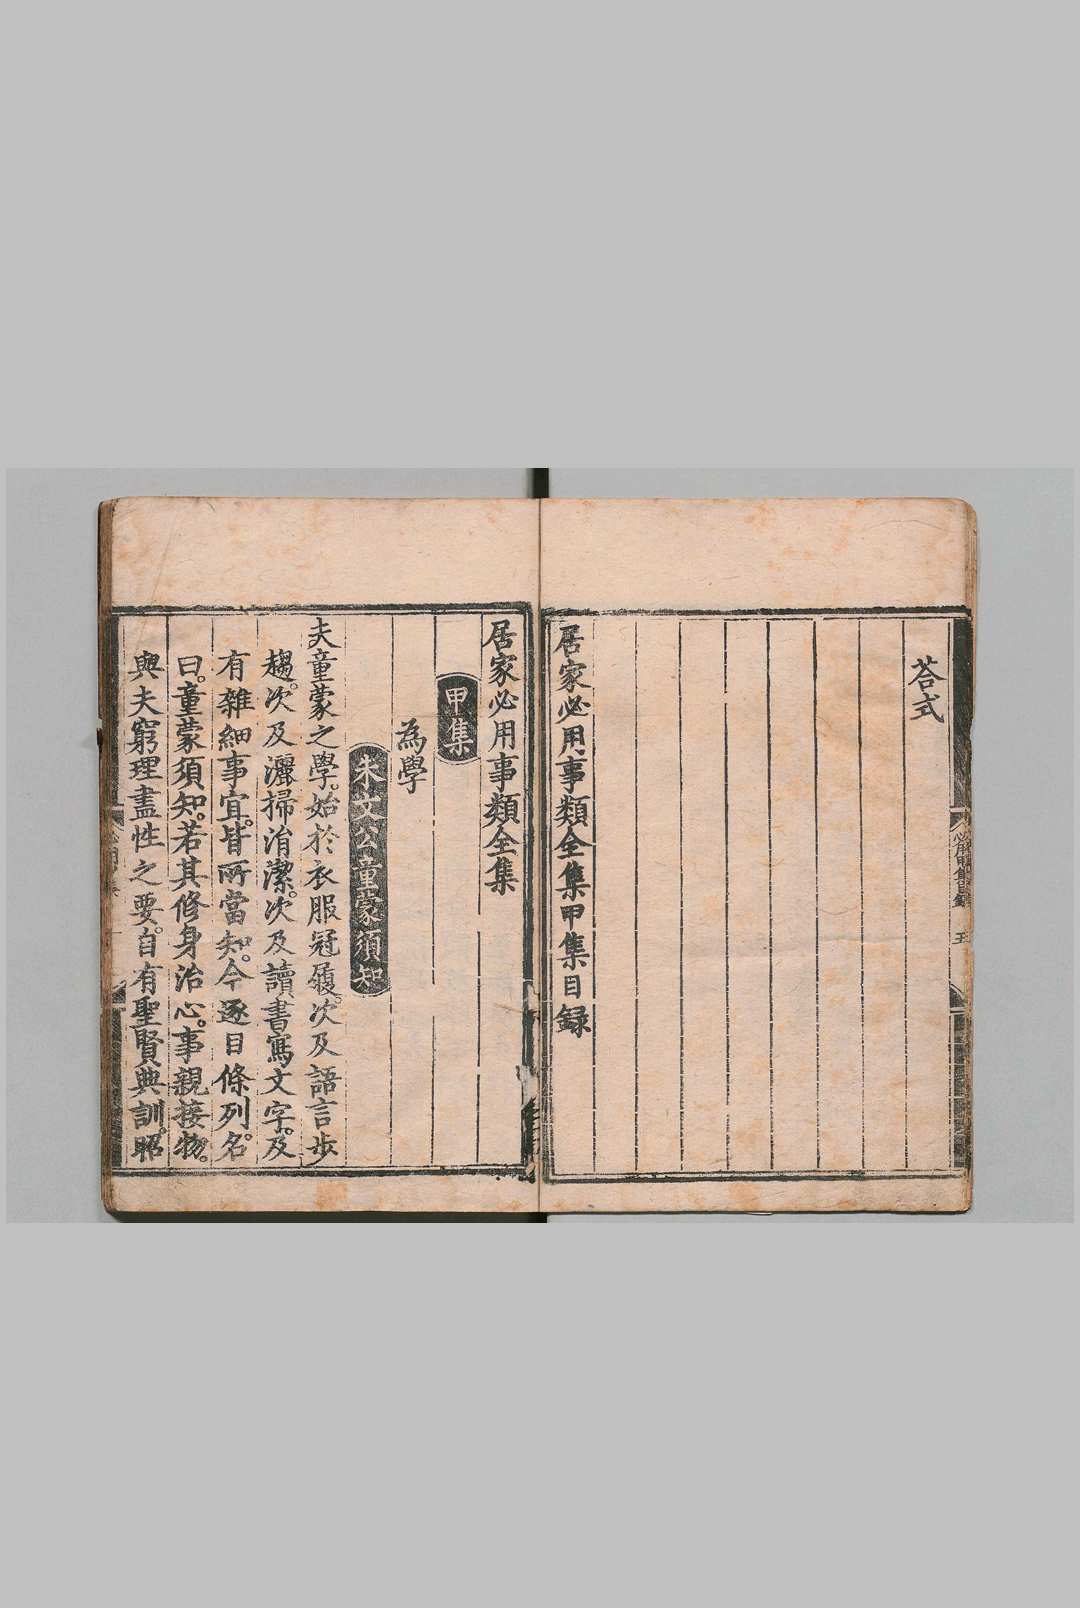 荅式
居家必用事類全集甲集目録
居家必用事類全集
甲集
為學
朱文公童蒙須知
夫童蒙之學。始於衣服冠履。次及語言步
趨。次及灑掃涓潔。次及讀書寫文字。及
有雜細事宜。皆所當知。今逐目條列。名
曰。童蒙須知。若其修身治心。事親接物。
與夫窮理盡性之要。自有聖賢典訓。昭